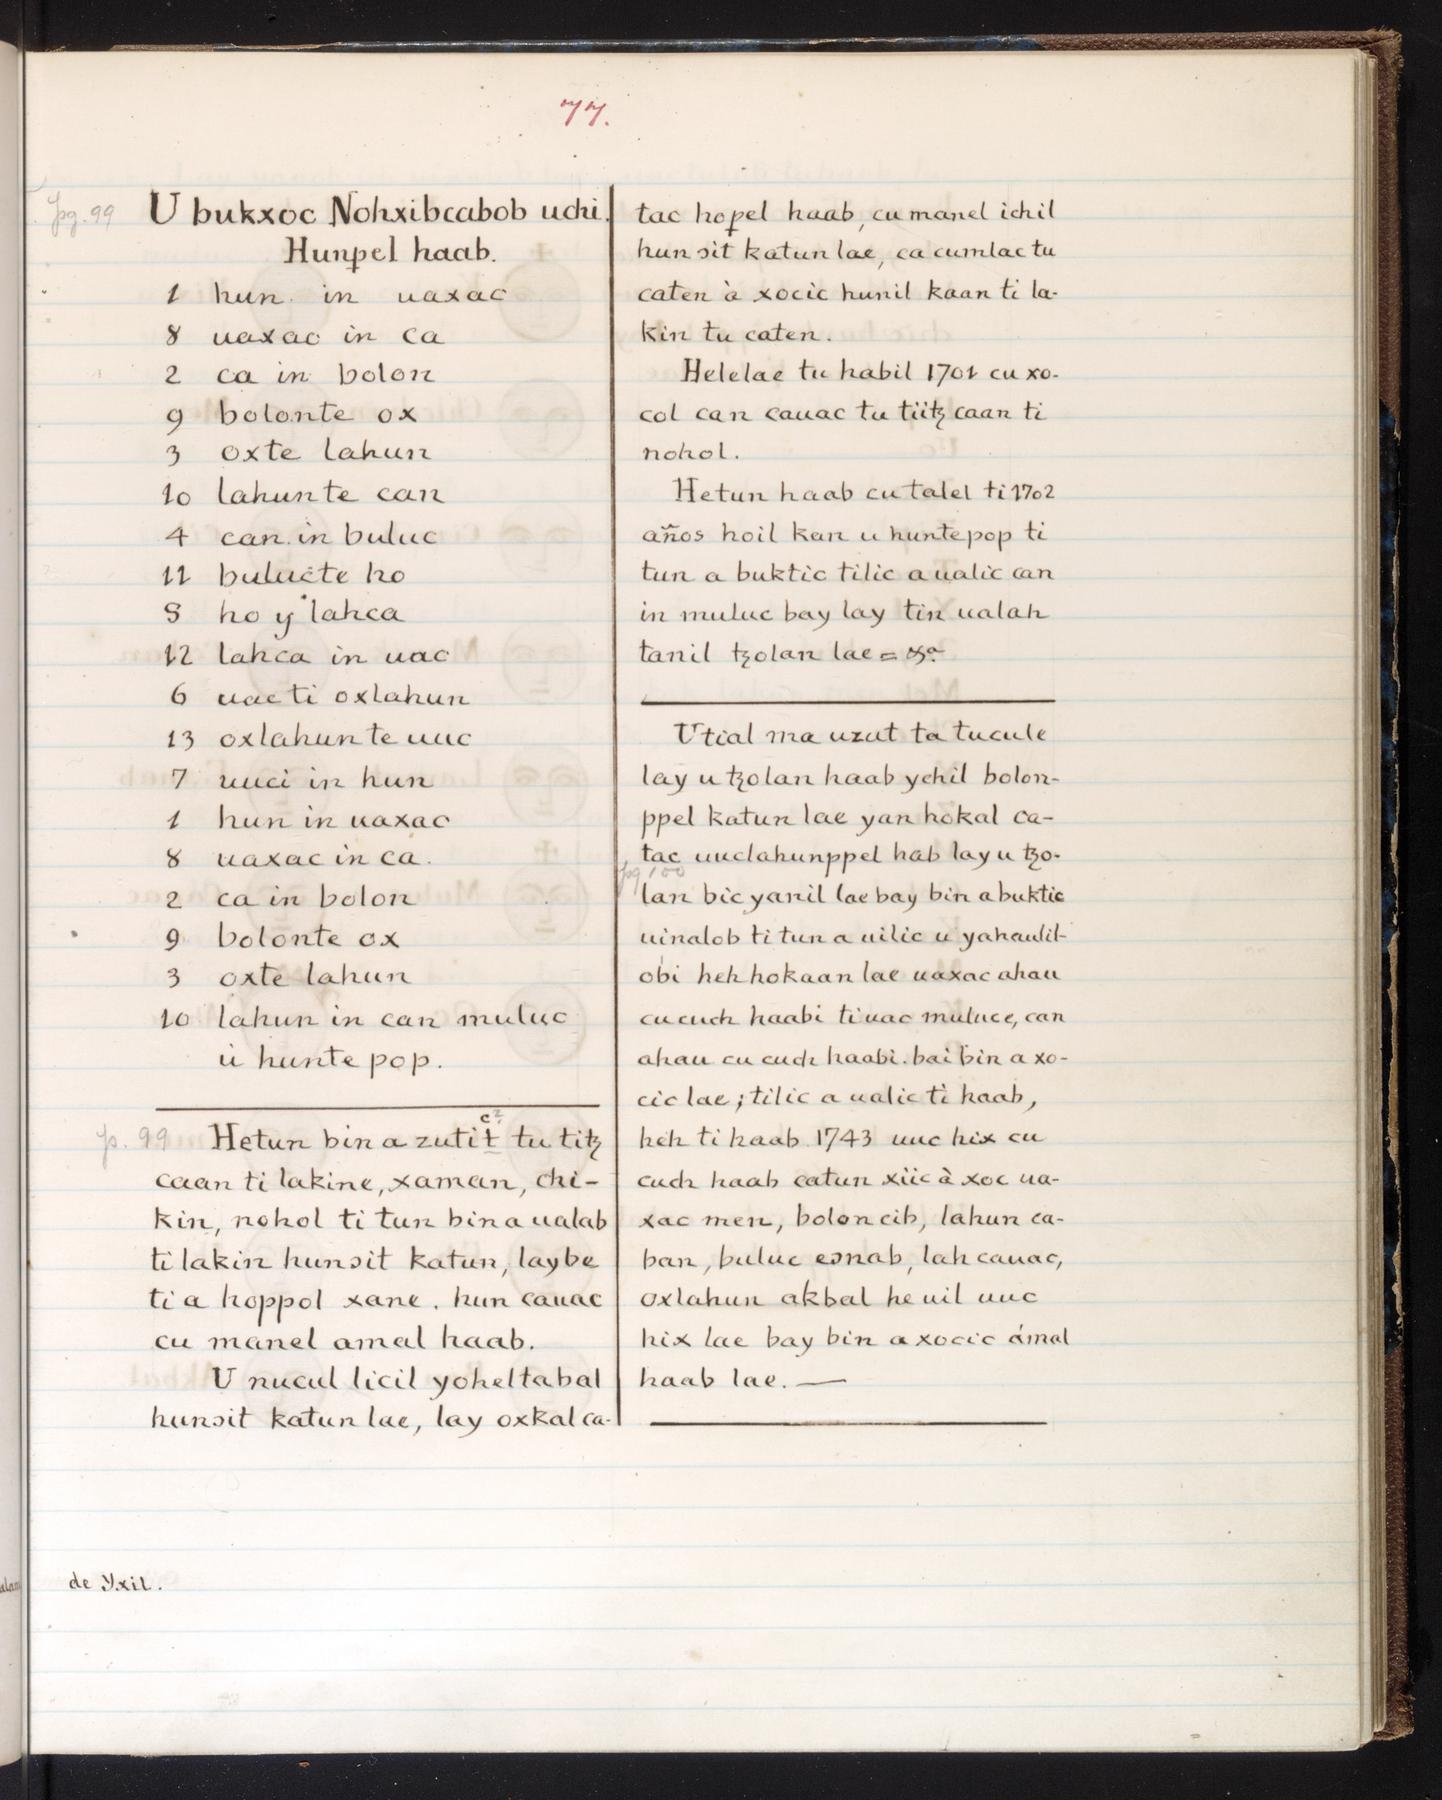 77.
pg. 99
U bukxoc Nohxibcabob uchi.
Hunpel haab.
1 hun in uaxac
8 uaxac in ca
2 ca in bolon
9 bolonte ox
3 oxte lahun
10 lahunte can
4 can in buluc
11 bulucte ho
5 ho y lahca
12 lahca in uac
6 uac ti oxlahun
13 oxlahunte uuc
7 uuci in hun
1 hun in uaxac
8 uaxac in ca.
2 ca in bolon
9 bolonte ox
3 oxte lahun
10 lahun in can muluc
ù hunte pop.
p. 99
c?
Hetun bin a zutit tu titꜩ
caan ti lakine, xaman, chi-
kin, nohol ti tun bin a ualab
ti lakin hunɔit katun, laybe
ti a hoppol xane. hun cauac
cu manel amal haab.
U nucul licil yoheltabal
hunɔit katun lae, lay oxkal ca-
tac hopel haab, cu manel ichil
hun ɔit katun lae, ca cumlac tu
caten à xocic hunil kaan ti la-
kin tu caten.
Helelae tu habil 1701 cu xo-
col can cauac tu tiitꜩ caan ti
nohol.
Hetun haab cu talel ti 1702
años hoil kan u hunte pop ti
tun a buktic tilic a ualic can
in muluc bay lay tin ualah
tanil ꜩolan lae =
Utial ma uzut ta tucule
lay u ꜩolan haab ychil bolon-
ppel katun lae yan hokal ca-
tac uuclahunppel hab lay u ꜩo-
pg 100
lan bic yanil lae bay bin a buktic
uinalob ti tun a uilic u yahaulil-
obi heh hokaan lae uaxac ahau
cu cuch haabi ti uac muluce, can
ahau cu cuch haabi. bai bin a xo-
cic lae; tilic a ualic ti haab,
heh ti haab 1743 uuc hix cu
cuch haab catun xiic à xoc ua-
xac men, bolon cib, lahun ca-
ban, buluc eɔnab, lah cauac,
oxlahun akbal he uil uuc
hix lae bay bin a xocic ámal
haab lae. —
de Yxil.